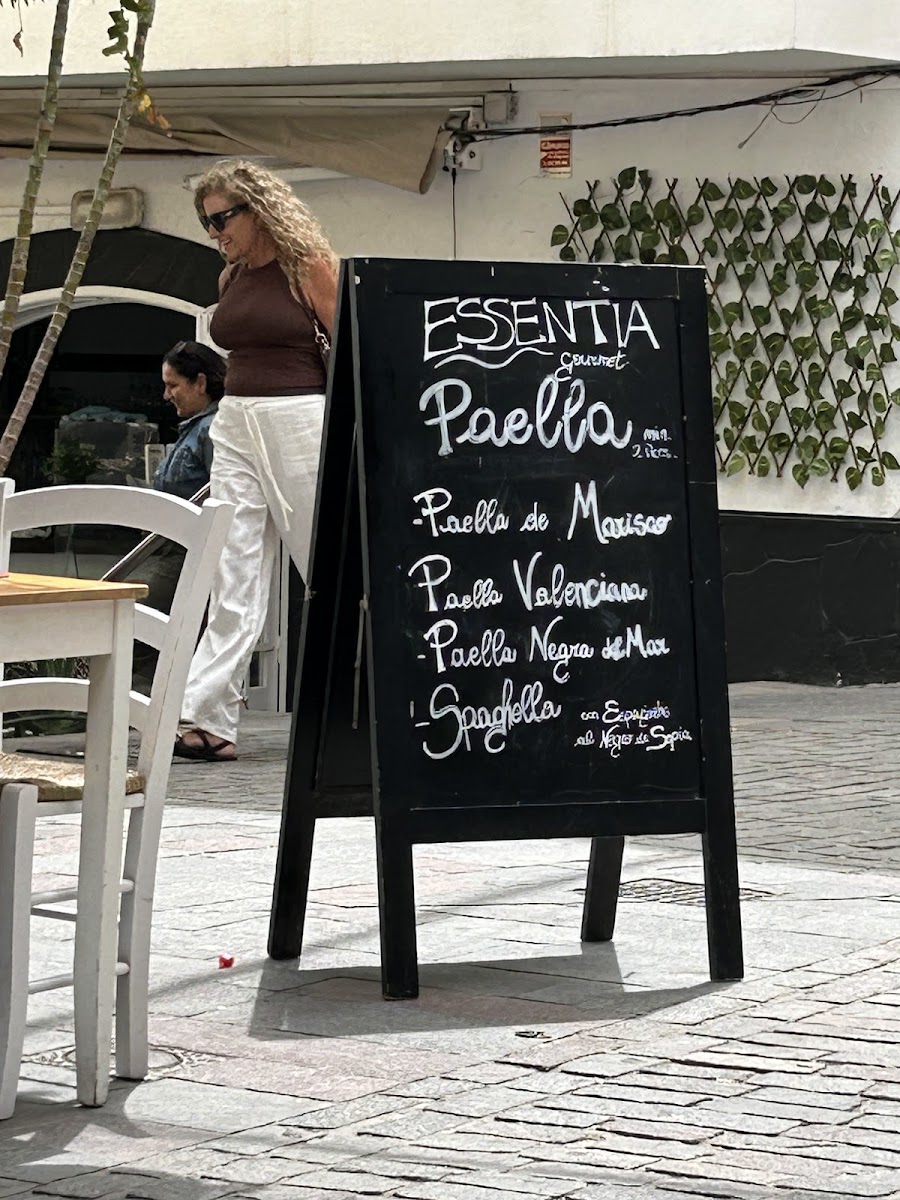 ESSENTIA
Gourmet
Paella min.
2 Pers.
-Paella de Marisco
Paella Valenciana
-Paella Negra de Mar
-Spaghella con
al Negro de Sepia